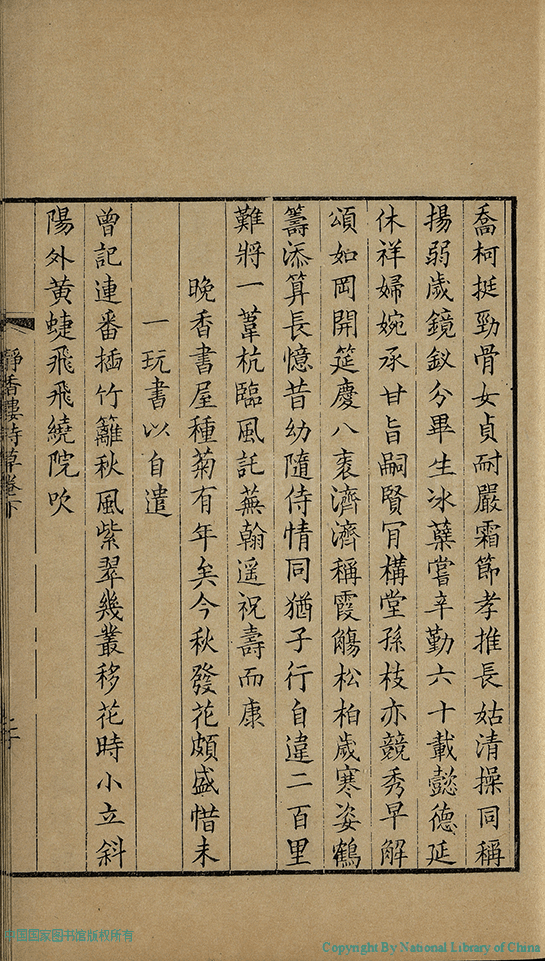 喬柯挺勁骨女貞耐嚴霜節孝推長姑清操同稱
揚弱歲鏡釵分畢生冰蘖嘗辛勤六十載懿德延
休祥婦婉承甘旨嗣賢肎構堂孫枝亦競秀早解
頌如岡開筵慶八袠濟濟稱霞觴松柏歲寒姿鶴
籌添算長憶昔幼隨侍情同猶子行自違二百里
難將一葦杭臨風託蕪翰遥祝壽而康
晚香書屋種菊有年矣今秋發花頗盛惜未
一玩書以自遣
曾記連番插竹籬秋風紫翠幾叢移花時小立斜
陽外黄蜨飛飛繞院吹
靜香樓詩草卷下
中国国家图书馆版权所有
Copyright By National Library of China